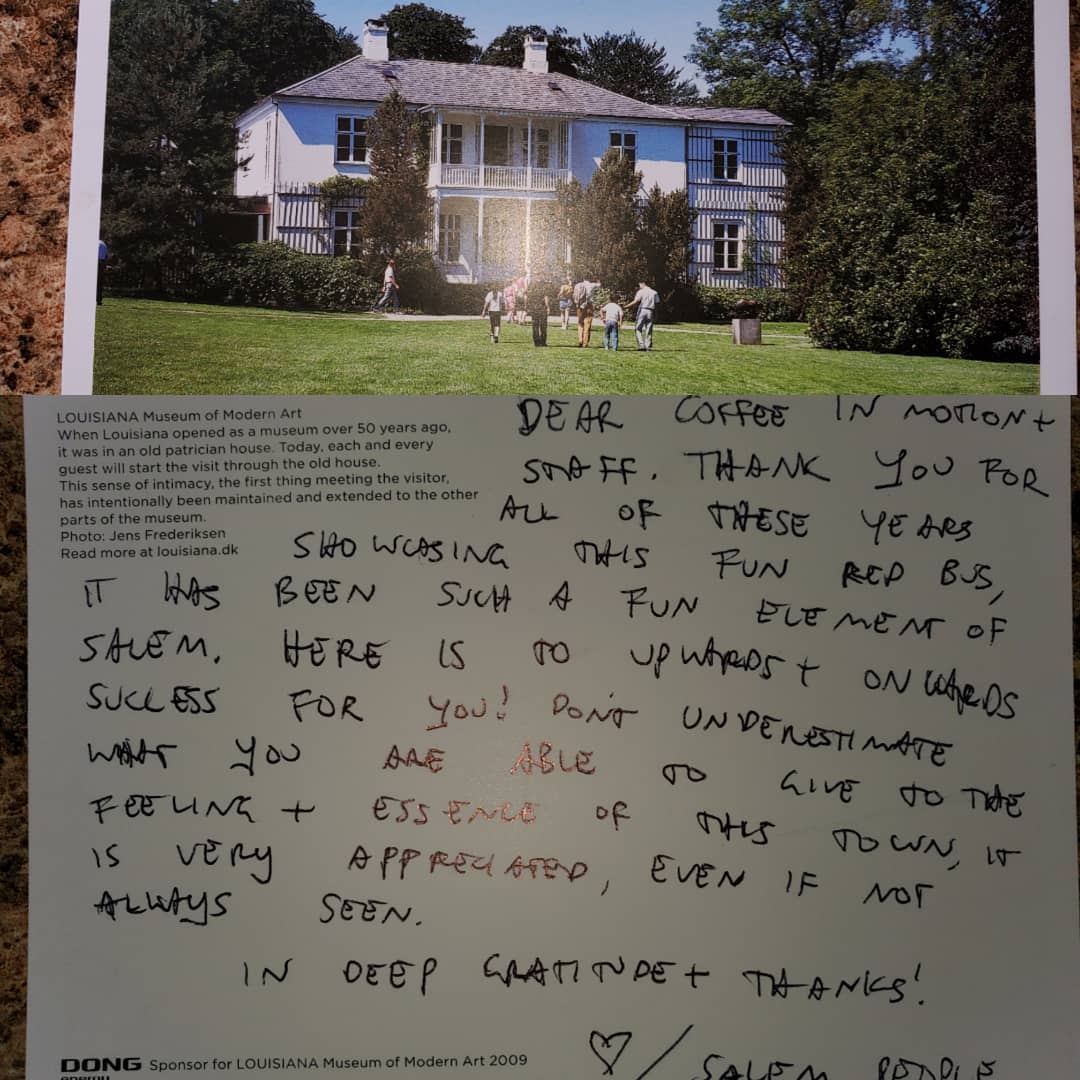 LOUISIANA Museum of Modern Art
When Louisiana opened as a museum over 50 years ago,
it was in an old patrician house. Today, each and every
guest will start the visit through the old house.
This sense of intimacy, the first thing meeting the visitor,
has intentionally been maintained and extended to the other
parts of the museum.
Photo: Jens Frederiksen
Read more at louisiana.dk
DEAR COFFEE IN MOTION +
STAFF. THANK YOU FOR
ALL OF THESE YEARS
SHOWCASING THIS FUN RED BUS,
IT HAS BEEN SUCH A FUN ELEMENT OF
SALEM. HERE IS TO UPWARDS + ONWARDS
SUCCESS FOR YOU! DON'T UNDERESTIMATE
WHAT YOU ARE ABLE TO GIVE TO THE
FEELING + ESSENCE OF THIS TOWN, IT
IS VERY APPRECIATED, EVEN IF NOT
ALWAYS SEEN.
IN DEEP GRATITUDE + THANKS!
♡/SALEM PEOPLE
DONG Sponsor for LOUISIANA Museum of Modern Art 2009
energy